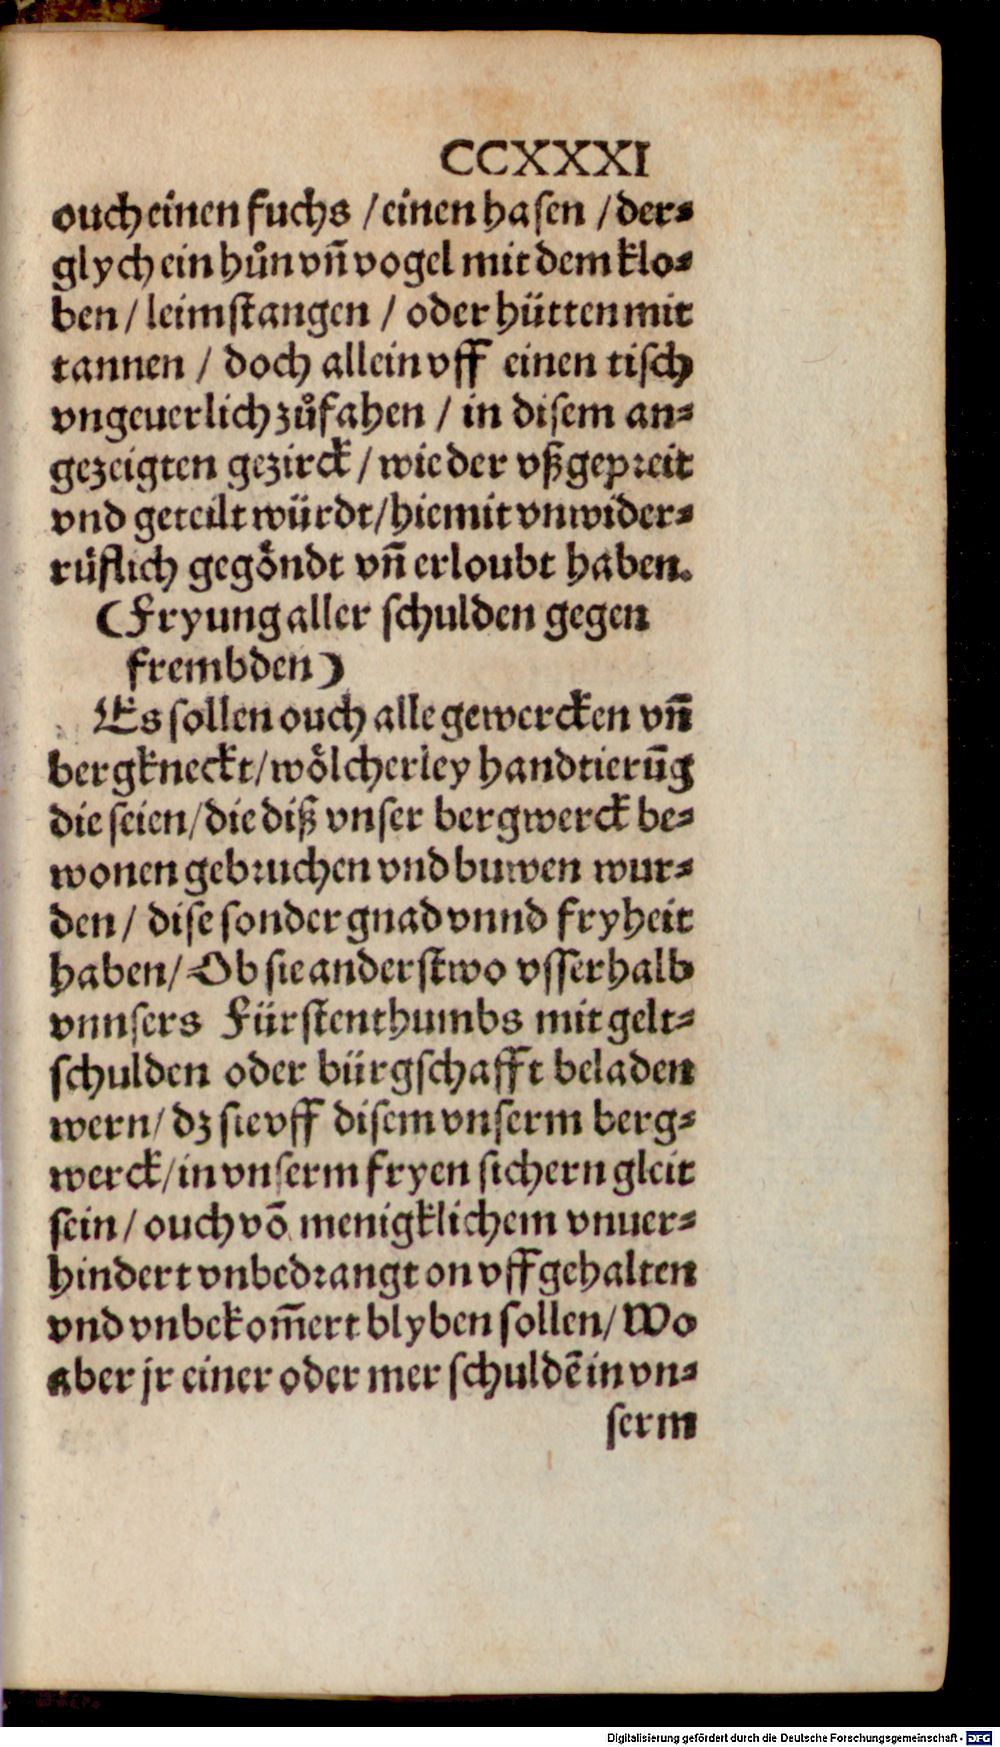 CCXXXI
ouch einen fuchs / einen hasen / der⸗
glych ein hůn vñ vogel mit dem klo⸗
ben / leimstangen / oder hütten mit
tannen / doch allein vff einen tisch
vngeuerlich zůfahen / in disem an⸗
gezeigten gezirck / wie der vßgepreit
vnd geteilt würdt / hiemit vnwider⸗
růflich gegöndt vñ erloubt haben.
(Fryung aller schulden gegen
frembden)
Es sollen ouch alle gewercken vñ
bergkneckt / wölcherley handtierūg
die seien / die diß vnser bergwerck be⸗
wonen gebruchen vnd buwen wur⸗
den / dise sonder gnad vnnd fryheit
haben / Ob sie anderstwo vsserhalb
vnnsers Fürstenthumbs mit gelt⸗
schulden oder bürgschafft beladen
wern / dz sie vff disem vnserm berg⸗
werck / in vnserm fryen sichern gleit
sein / ouch võ menigklichem vnuer⸗
hindert vnbedrangt on vffgehalten
vnd vnbekom̄ert blyben sollen / Wo
aber jr einer oder mer schuldē in vn⸗
serm
Digitalisierung gefördert durch die Deutsche Forschungsgemeinschaft - DFG